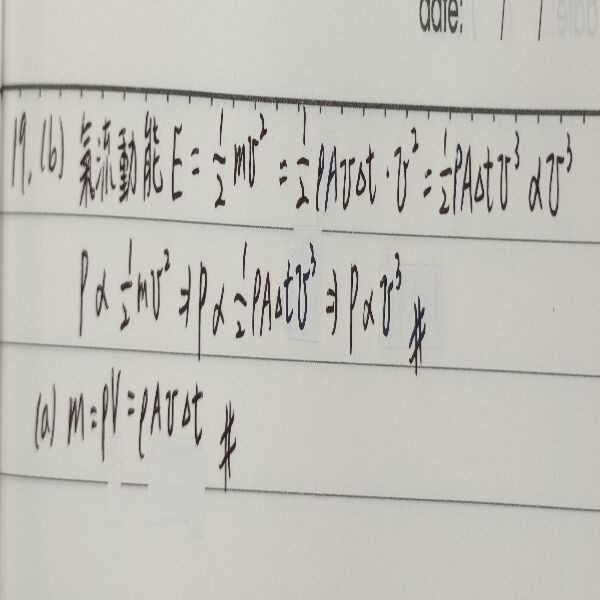 date: / /
19. (b) 氣流動能 E = ½mv² = ½ρAvΔt · v² = ½ρAΔtv³ ∝ v³
P ∝ ½mv² ⇒ P ∝ ½ρAΔtv³ ⇒ P ∝ v³ #
(a) m = ρV = ρAvΔt #